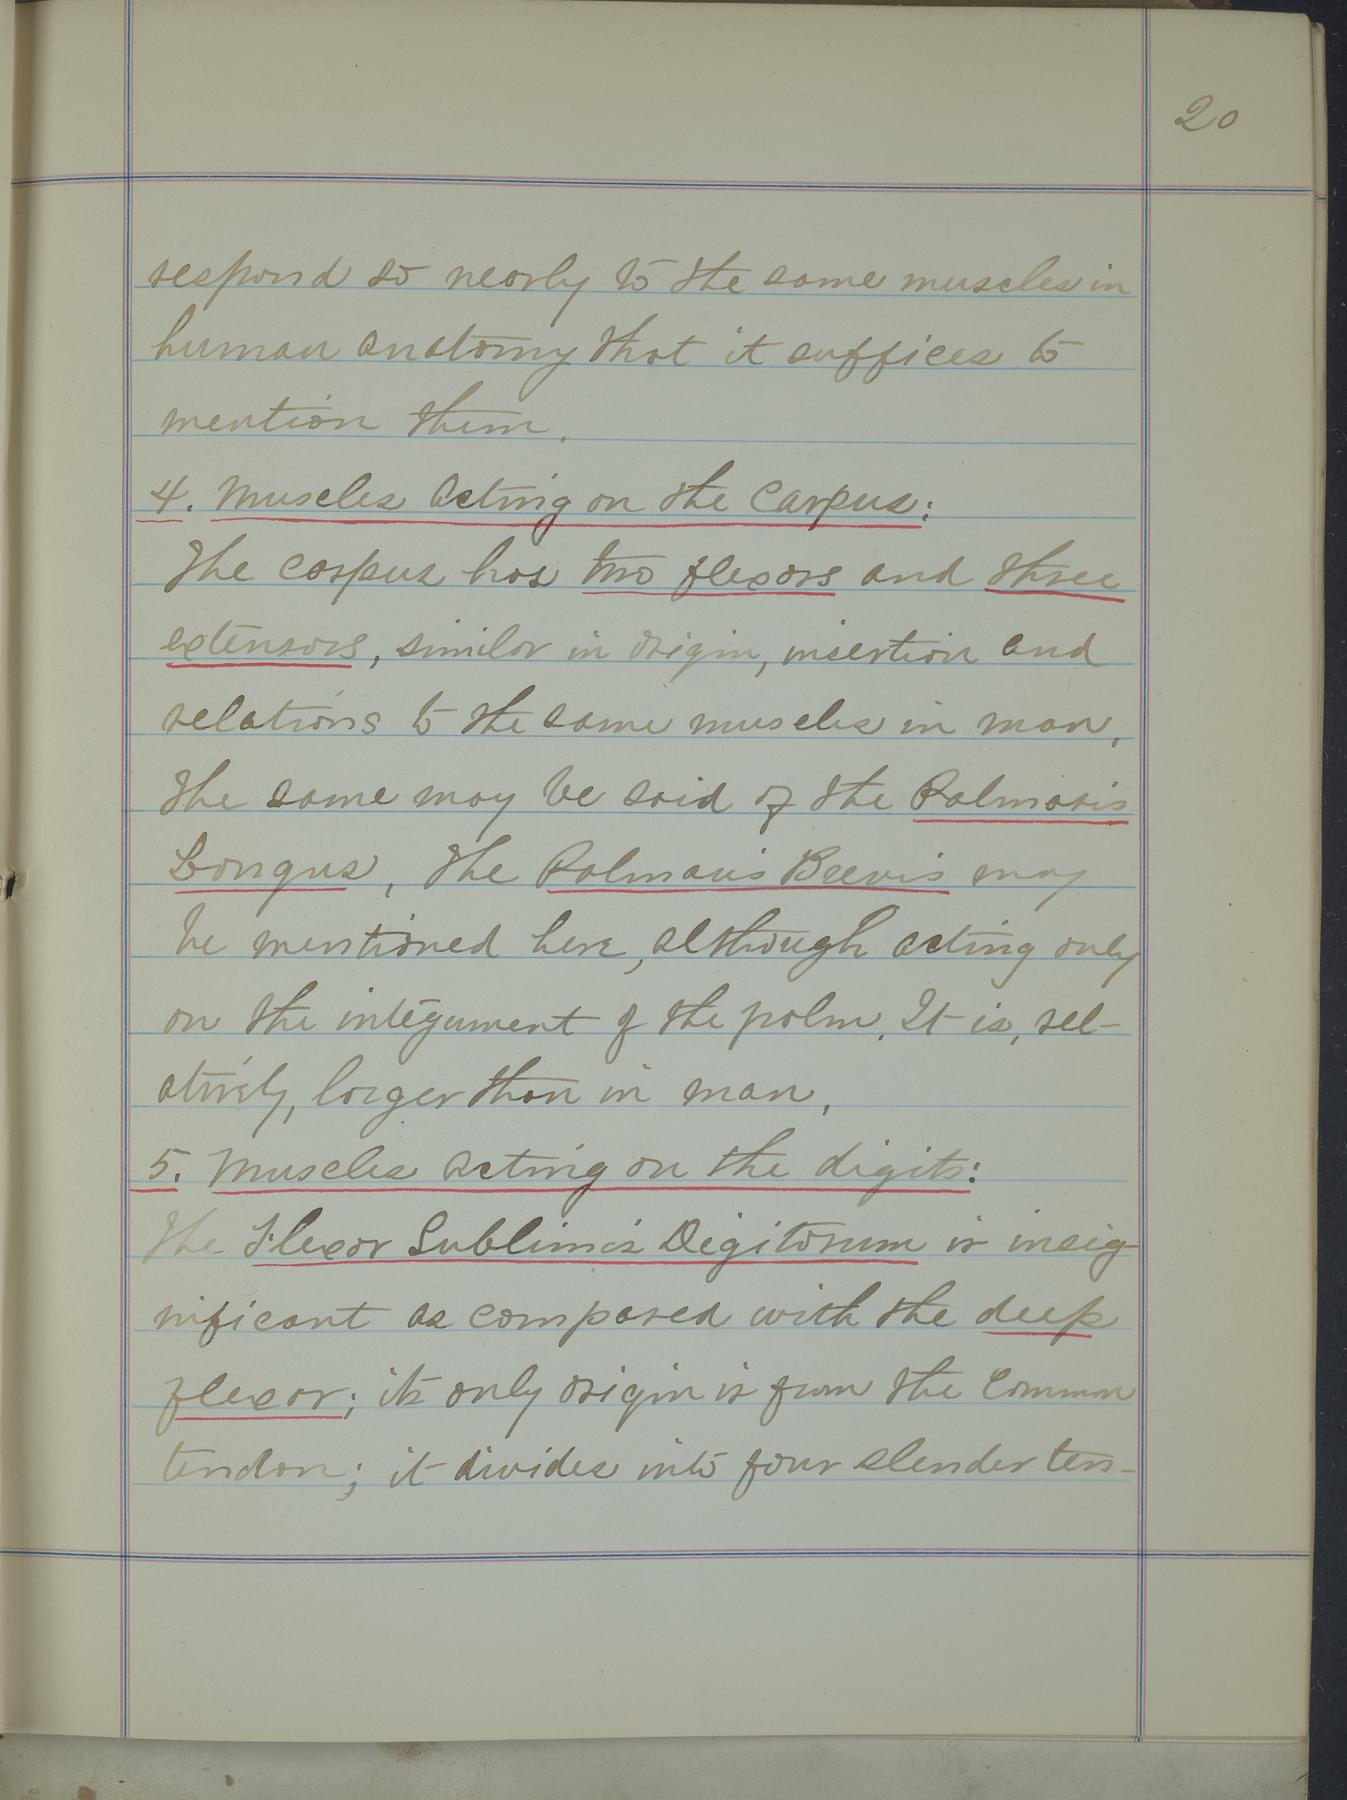 20
respond so nearly to the same muscles in
human anatomy that it suffices to
mention them.
4. Muscles acting on the Carpus:
The carpus has two flexors and three
extensors, similar in origin, insertion and
relations to the same muscles in man,
the same may be said of the Palmaris
Longus, the Palmaris Brevis may
be mentioned here, although acting only
on the integument of the palm. It is, rel-
atively, larger than in man,
5. Muscles acting on the digits:
The Flexor Sublimis Digitorum is insig-
nificant as compared with the deep
flexor; its only origin is from the common
tendon; it divides into four slender ten-